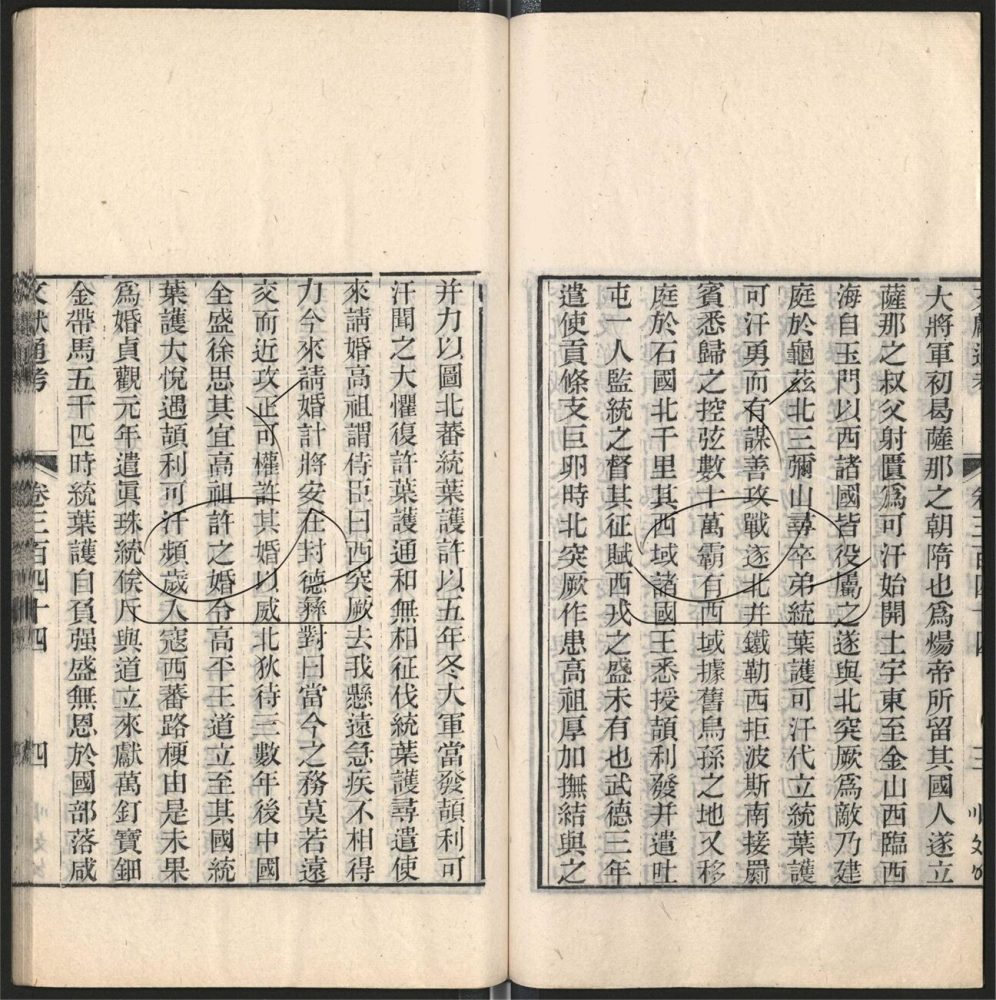 大將軍初曷薩那之朝隋也爲煬帝所留其國人遂立
薩那之叔父射匱爲可汗始開土宇東至金山西臨西
海自玉門以西諸國皆役屬之遂與北突厥爲敵乃建
庭於龜茲北三彌山尋卒弟統葉護可汗代立統葉護
可汗勇而有謀善攻戰遂北并鐵勒西拒波斯南接罽
賓悉歸之控弦數十萬霸有西域據舊烏孫之地又移
庭於石國北千里其西域諸國王悉授頡利發并遣吐
屯一人監統之督其征賦西戎之盛未有也武德三年
遣使貢條支巨卵時北突厥作患高祖厚加撫結與之
并力以圖北蕃統葉護許以五年冬大軍當發頡利可
汗聞之大懼復許葉護通和無相征伐統葉護尋遣使
來請婚高祖謂侍臣曰西突厥去我懸遠急疾不相得
力今來請婚計將安在封德彝對曰當今之務莫若遠
交而近攻正可權許其婚以威北狄待三數年後中國
全盛徐思其宜高祖許之婚令高平王道立至其國統
葉護大悅遇頡利可汗頻歲入寇西蕃路梗由是未果
爲婚貞觀元年遣眞珠統俟斤與道立來獻萬釘寶鈿
金帶馬五千匹時統葉護自負强盛無恩於國部落咸
文獻通考 卷三百四十四 四